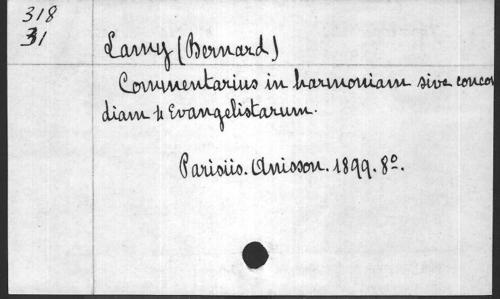 318
31
Lamy (Bernard)
Commentarius in harmoniam sive concor
diam 4 Evangelistarum.
Parisiis. Anisson. 1899. 8º.